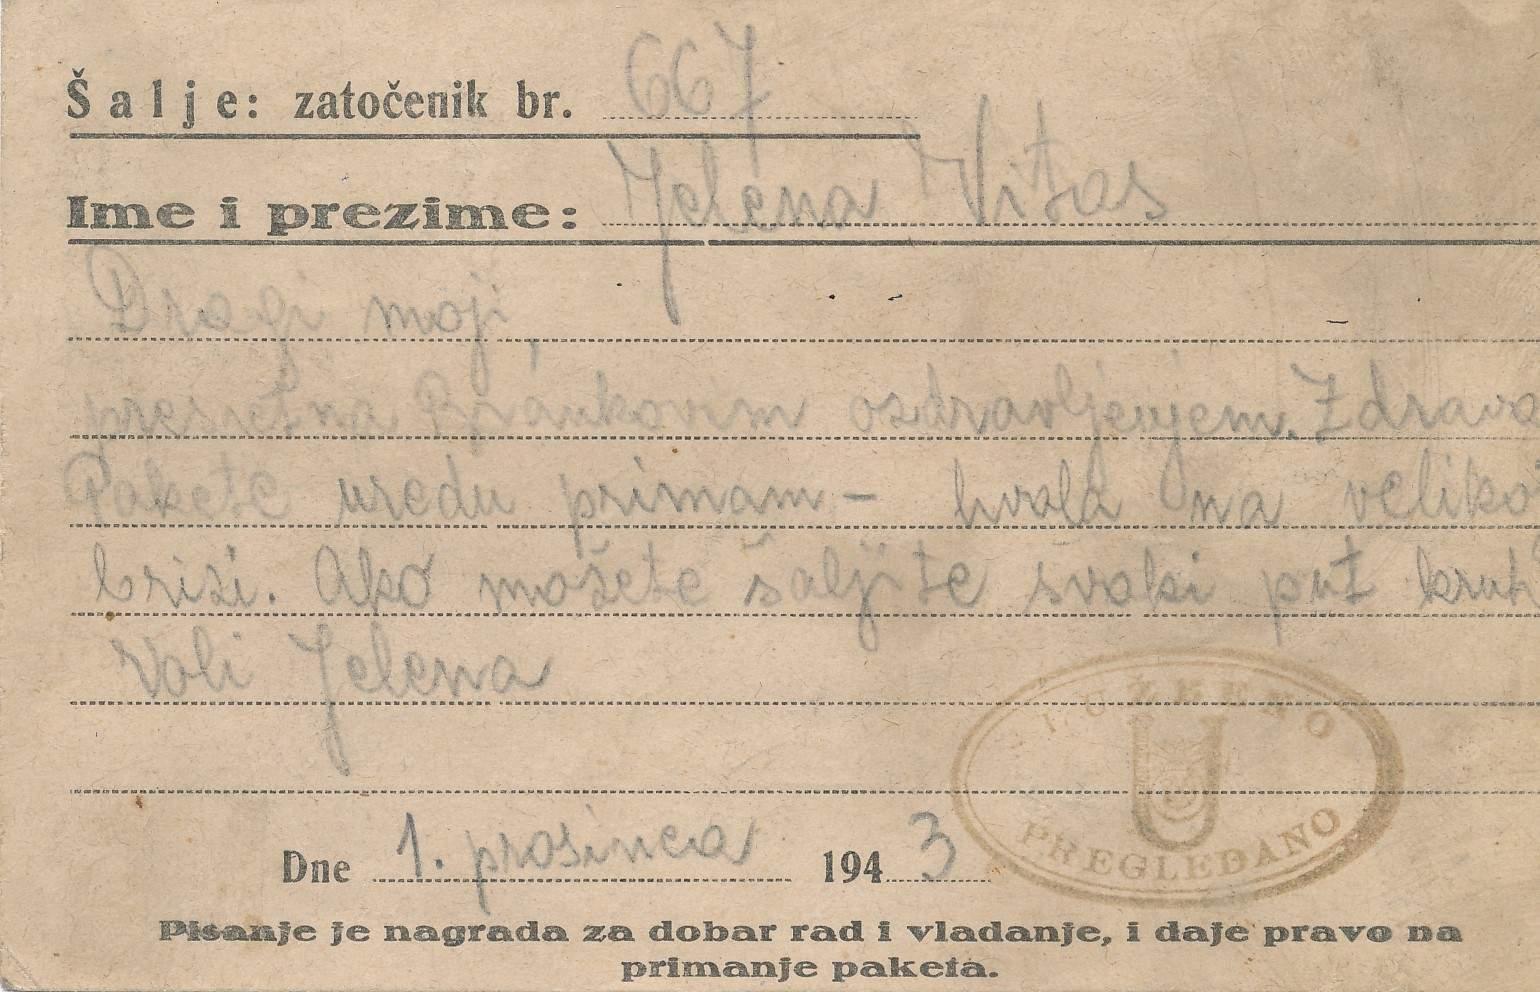 Šalje: zatočenik br. 667
Ime i prezime: Jelena Vitas
Dragi moji,
presretna Brankovim ozdravljenjem. Zdrava
Pakete uredu primam – hvala na veliko
brizi. Ako možete šaljite svaki put kruh
Voli Jelena
SLUŽBENO
U
PREGLEDANO
Dne 1. prosinca 1943
Pisanje je nagrada za dobar rad i vladanje, i daje pravo na
primanje paketa.